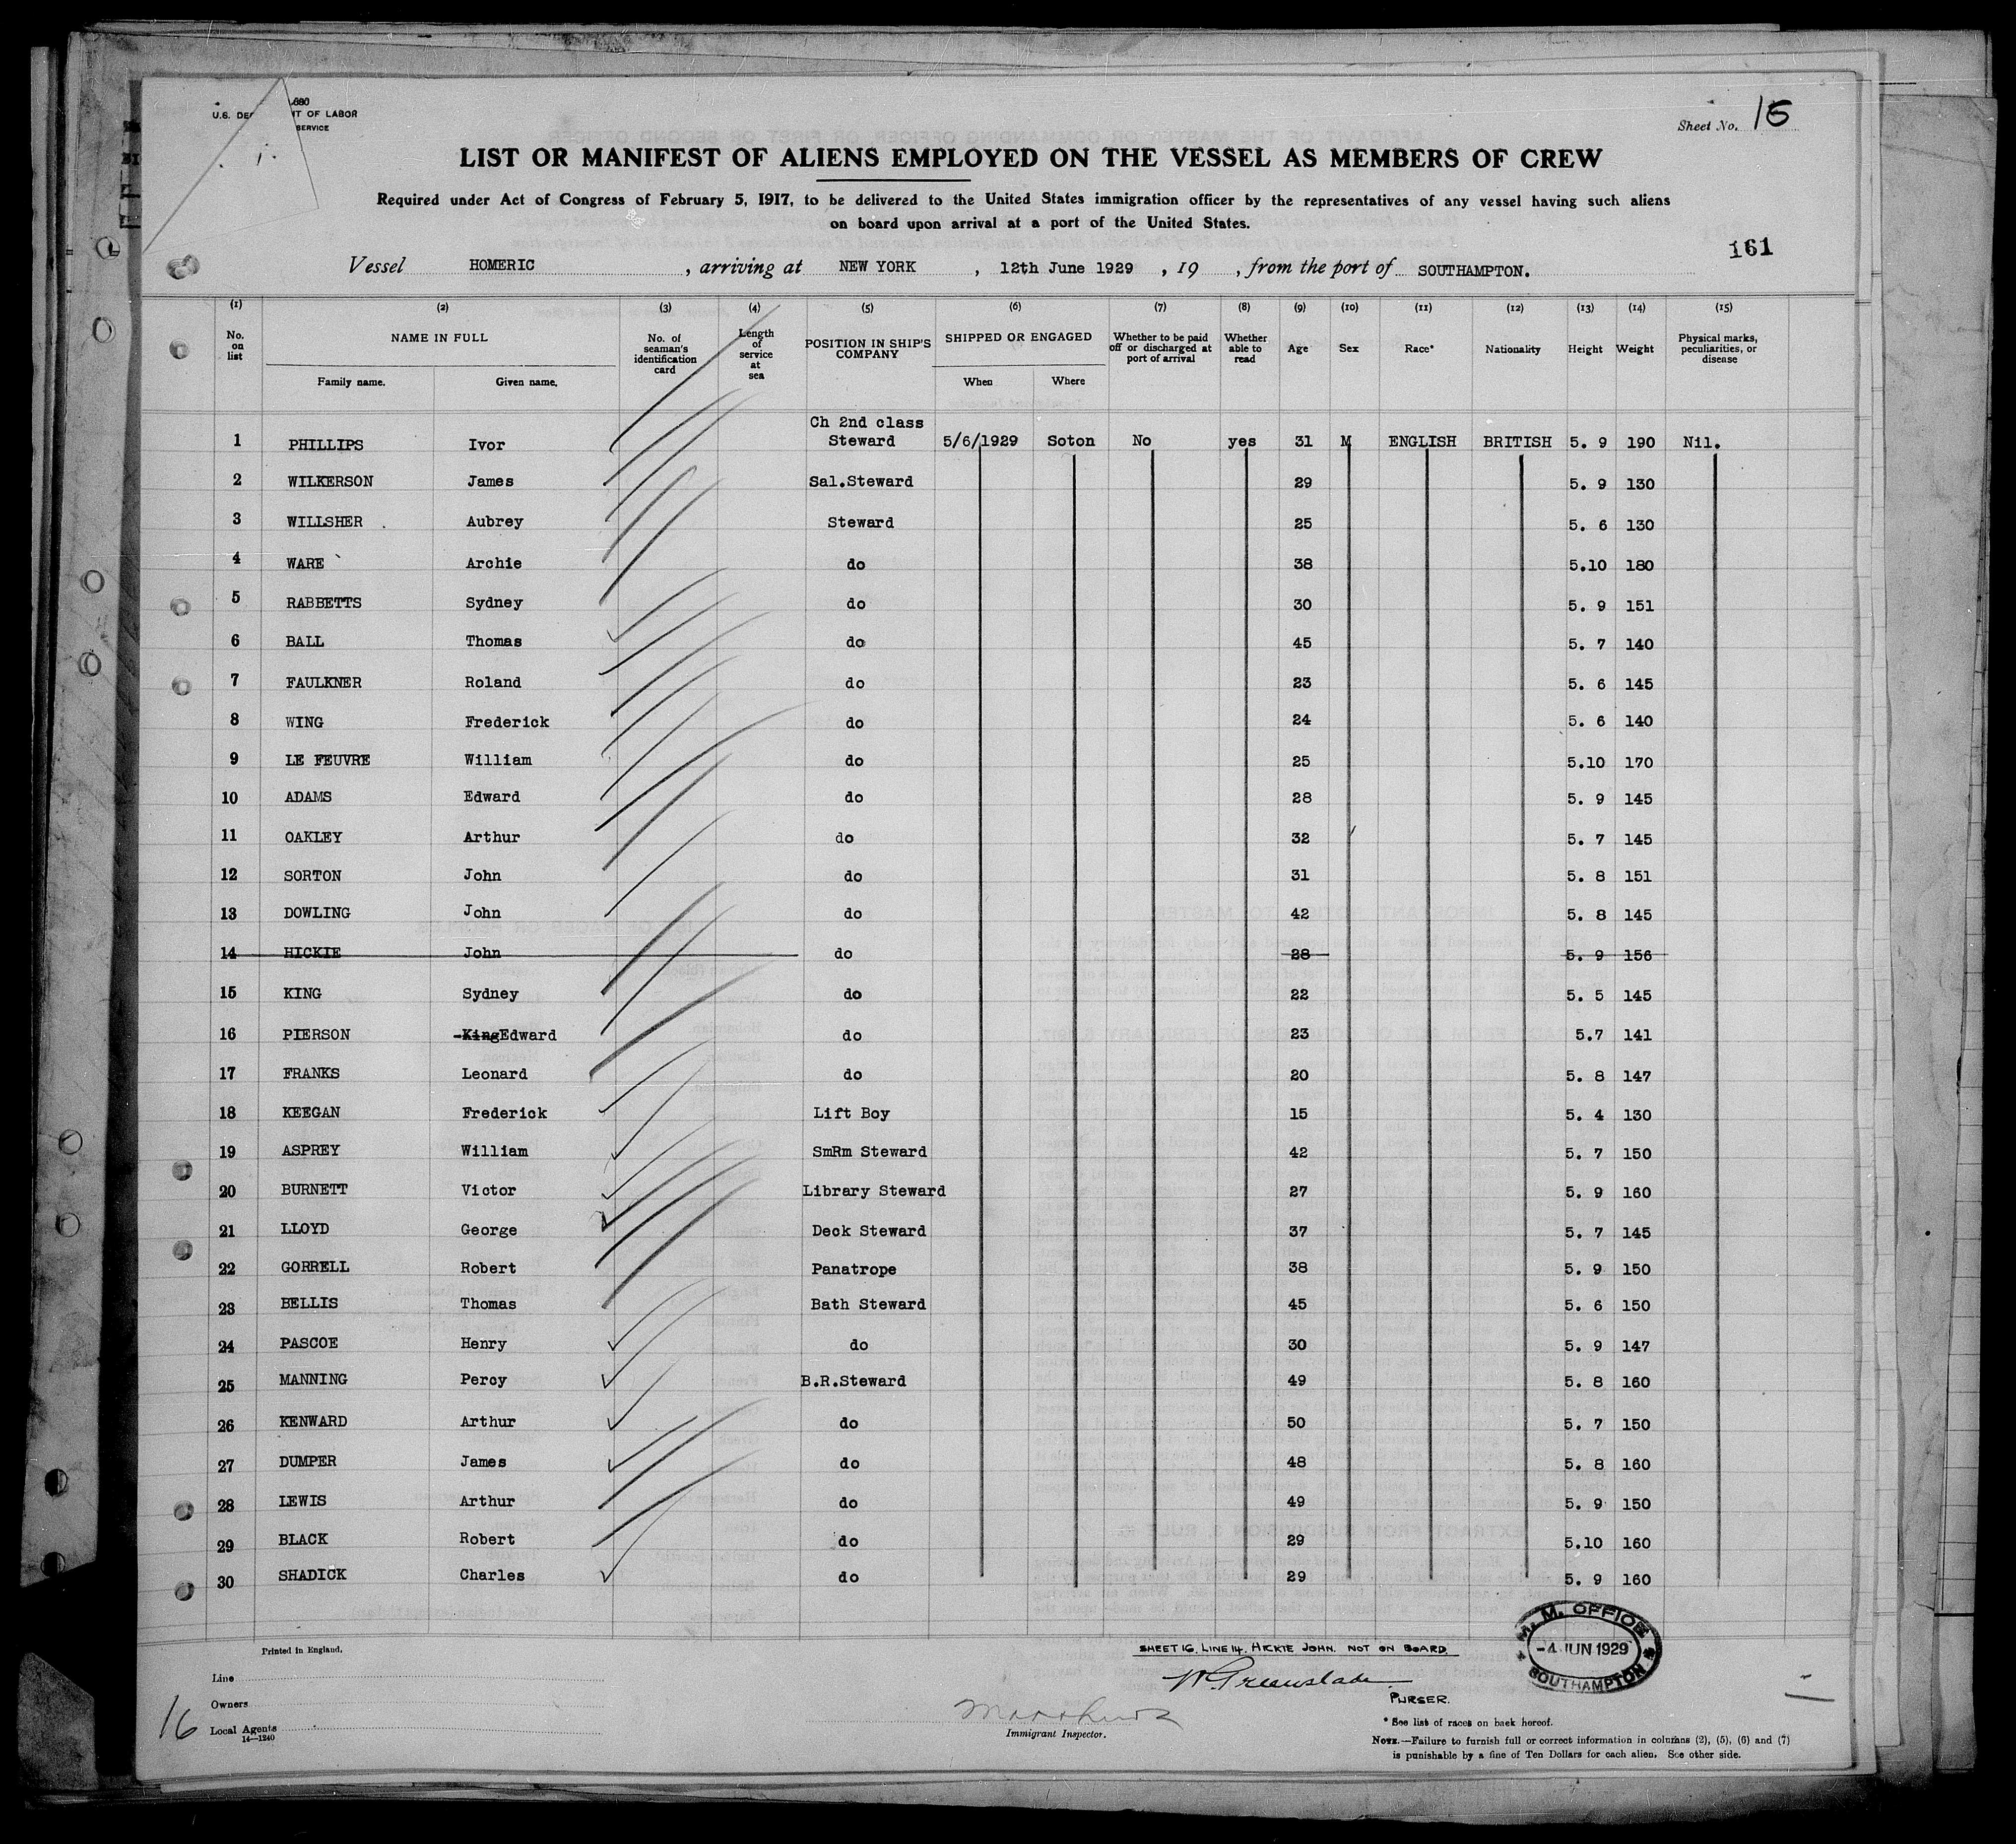 680
U.S. DE T OF LABOR
SERVICE
Sheet No. 16
LIST OR MANIFEST OF ALIENS EMPLOYED ON THE VESSEL AS MEMBERS OF CREW
Required under Act of Congress of February 5, 1917, to be delivered to the United States immigration officer by the representatives of any vessel having such aliens
on board upon arrival at a port of the United States.
161
Vessel HOMERIC, arriving at NEW YORK, 12th June 1929, 19, from the port of SOUTHAMPTON.
(1) (2) (3) (4) (5) (6) (7) (8) (9) (10) (11) (12) (13) (14) (15)
No. on list NAME IN FULL Family name. Given name. No. of seaman's identification card Length of service at sea POSITION IN SHIP'S COMPANY SHIPPED OR ENGAGED When Where Whether to be paid off or discharged at port of arrival Whether able to read Age Sex Race* Nationality Height Weight Physical marks, peculiarities, or disease
1 PHILLIPS Ivor Ch 2nd class Steward 5/6/1929 Soton No yes 31 M ENGLISH BRITISH 5. 9 190 Nil.
2 WILKERSON James Sal.Steward 29 5. 9 130
3 WILLSHER Aubrey Steward 25 5. 6 130
4 WARE Archie do 38 5.10 180
5 RABBETTS Sydney do 30 5. 9 151
6 BALL Thomas do 45 5. 7 140
7 FAULKNER Roland do 23 5. 6 145
8 WING Frederick do 24 5. 6 140
9 LE FEUVRE William do 25 5.10 170
10 ADAMS Edward do 28 5. 9 145
11 OAKLEY Arthur do 32 5. 7 145
12 SORTON John do 31 5. 8 151
13 DOWLING John do 42 5. 8 145
14 HICKIE John do 28 5. 9 156
15 KING Sydney do 22 5. 5 145
16 PIERSON KingEdward do 23 5.7 141
17 FRANKS Leonard do 20 5. 8 147
18 KEEGAN Frederick Lift Boy 15 5. 4 130
19 ASPREY William SmRm Steward 42 5. 7 150
20 BURNETT Victor Library Steward 27 5. 9 160
21 LLOYD George Deck Steward 37 5. 7 145
22 GORRELL Robert Panatrope 38 5. 9 150
23 BELLIS Thomas Bath Steward 45 5. 6 150
24 PASCOE Henry do 30 5. 9 147
25 MANNING Percy B.R.Steward 49 5. 8 160
26 KENWARD Arthur do 50 5. 7 150
27 DUMPER James do 48 5. 8 160
28 LEWIS Arthur do 49 5. 9 150
29 BLACK Robert do 29 5.10 160
30 SHADICK Charles do 29 5. 9 160
Printed in England.
SHEET 16. LINE 14. HICKIE JOHN. NOT ON BOARD.
W. Greenslade
PURSER.
M. M. OFFICE
-4 JUN 1929
SOUTHAMPTON
Line
Owners
Local Agents
14—1240
16
Immigrant Inspector.
* See list of races on back hereof.
NOTE.—Failure to furnish full or correct information in columns (2), (5), (6) and (7)
is punishable by a fine of Ten Dollars for each alien. See other side.